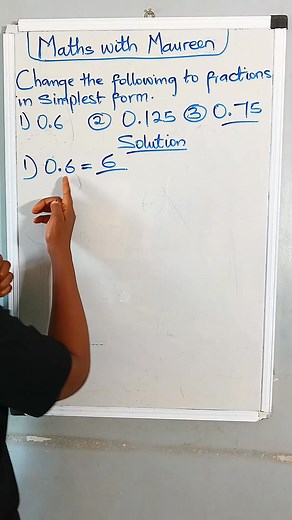 Maths with Maureen
Change the following to fractions
in simplest form.
1) 0.6 ② 0.125 ③ 0.75
Solution
1) 0.6 = 6